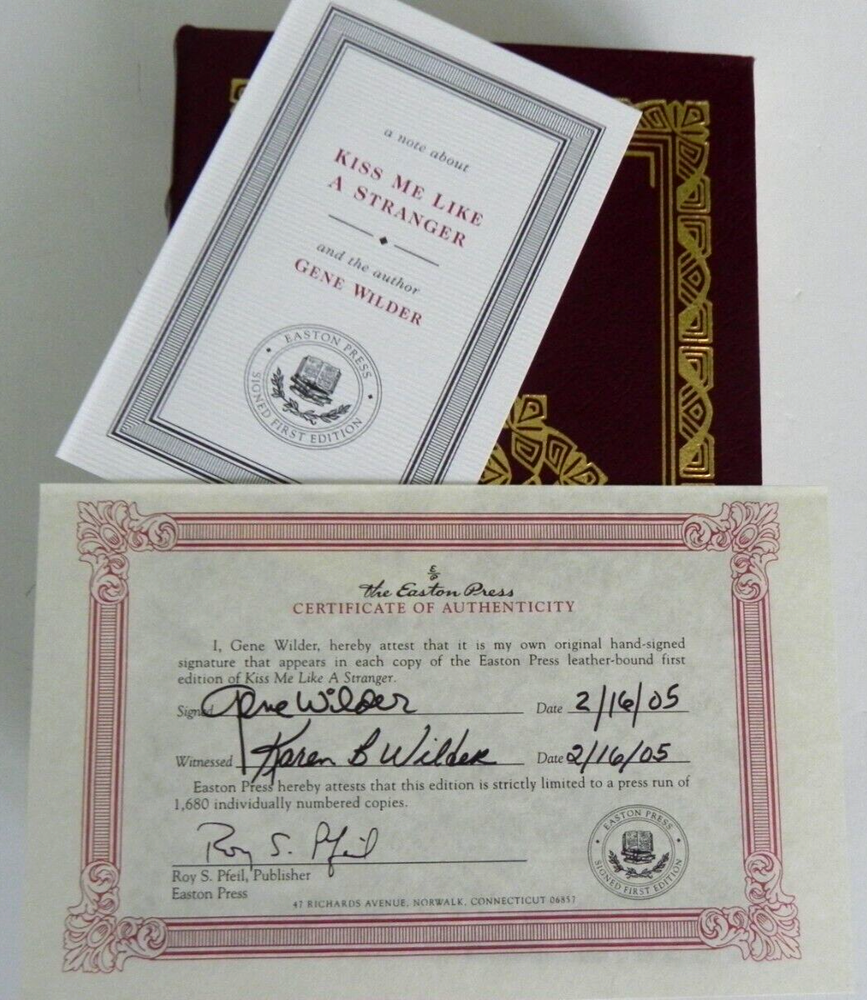 a note about
KISS ME LIKE
A STRANGER
and the author
GENE WILDER
EASTON PRESS
SIGNED FIRST EDITION
E
P
the Easton Press
CERTIFICATE OF AUTHENTICITY
I, Gene Wilder, hereby attest that it is my own original hand-signed
signature that appears in each copy of the Easton Press leather-bound first
edition of Kiss Me Like A Stranger.
Signed Gene Wilder Date 2/16/05
Witnessed Karen B Wilder Date 2/16/05
Easton Press hereby attests that this edition is strictly limited to a press run of
1,680 individually numbered copies.
Roy S. Pfeil
Roy S. Pfeil, Publisher
Easton Press
EASTON PRESS
SIGNED FIRST EDITION
47 RICHARDS AVENUE, NORWALK, CONNECTICUT 06857